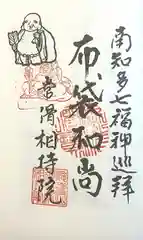 南知多七福神巡拝
布袋和尚
常滑相持院